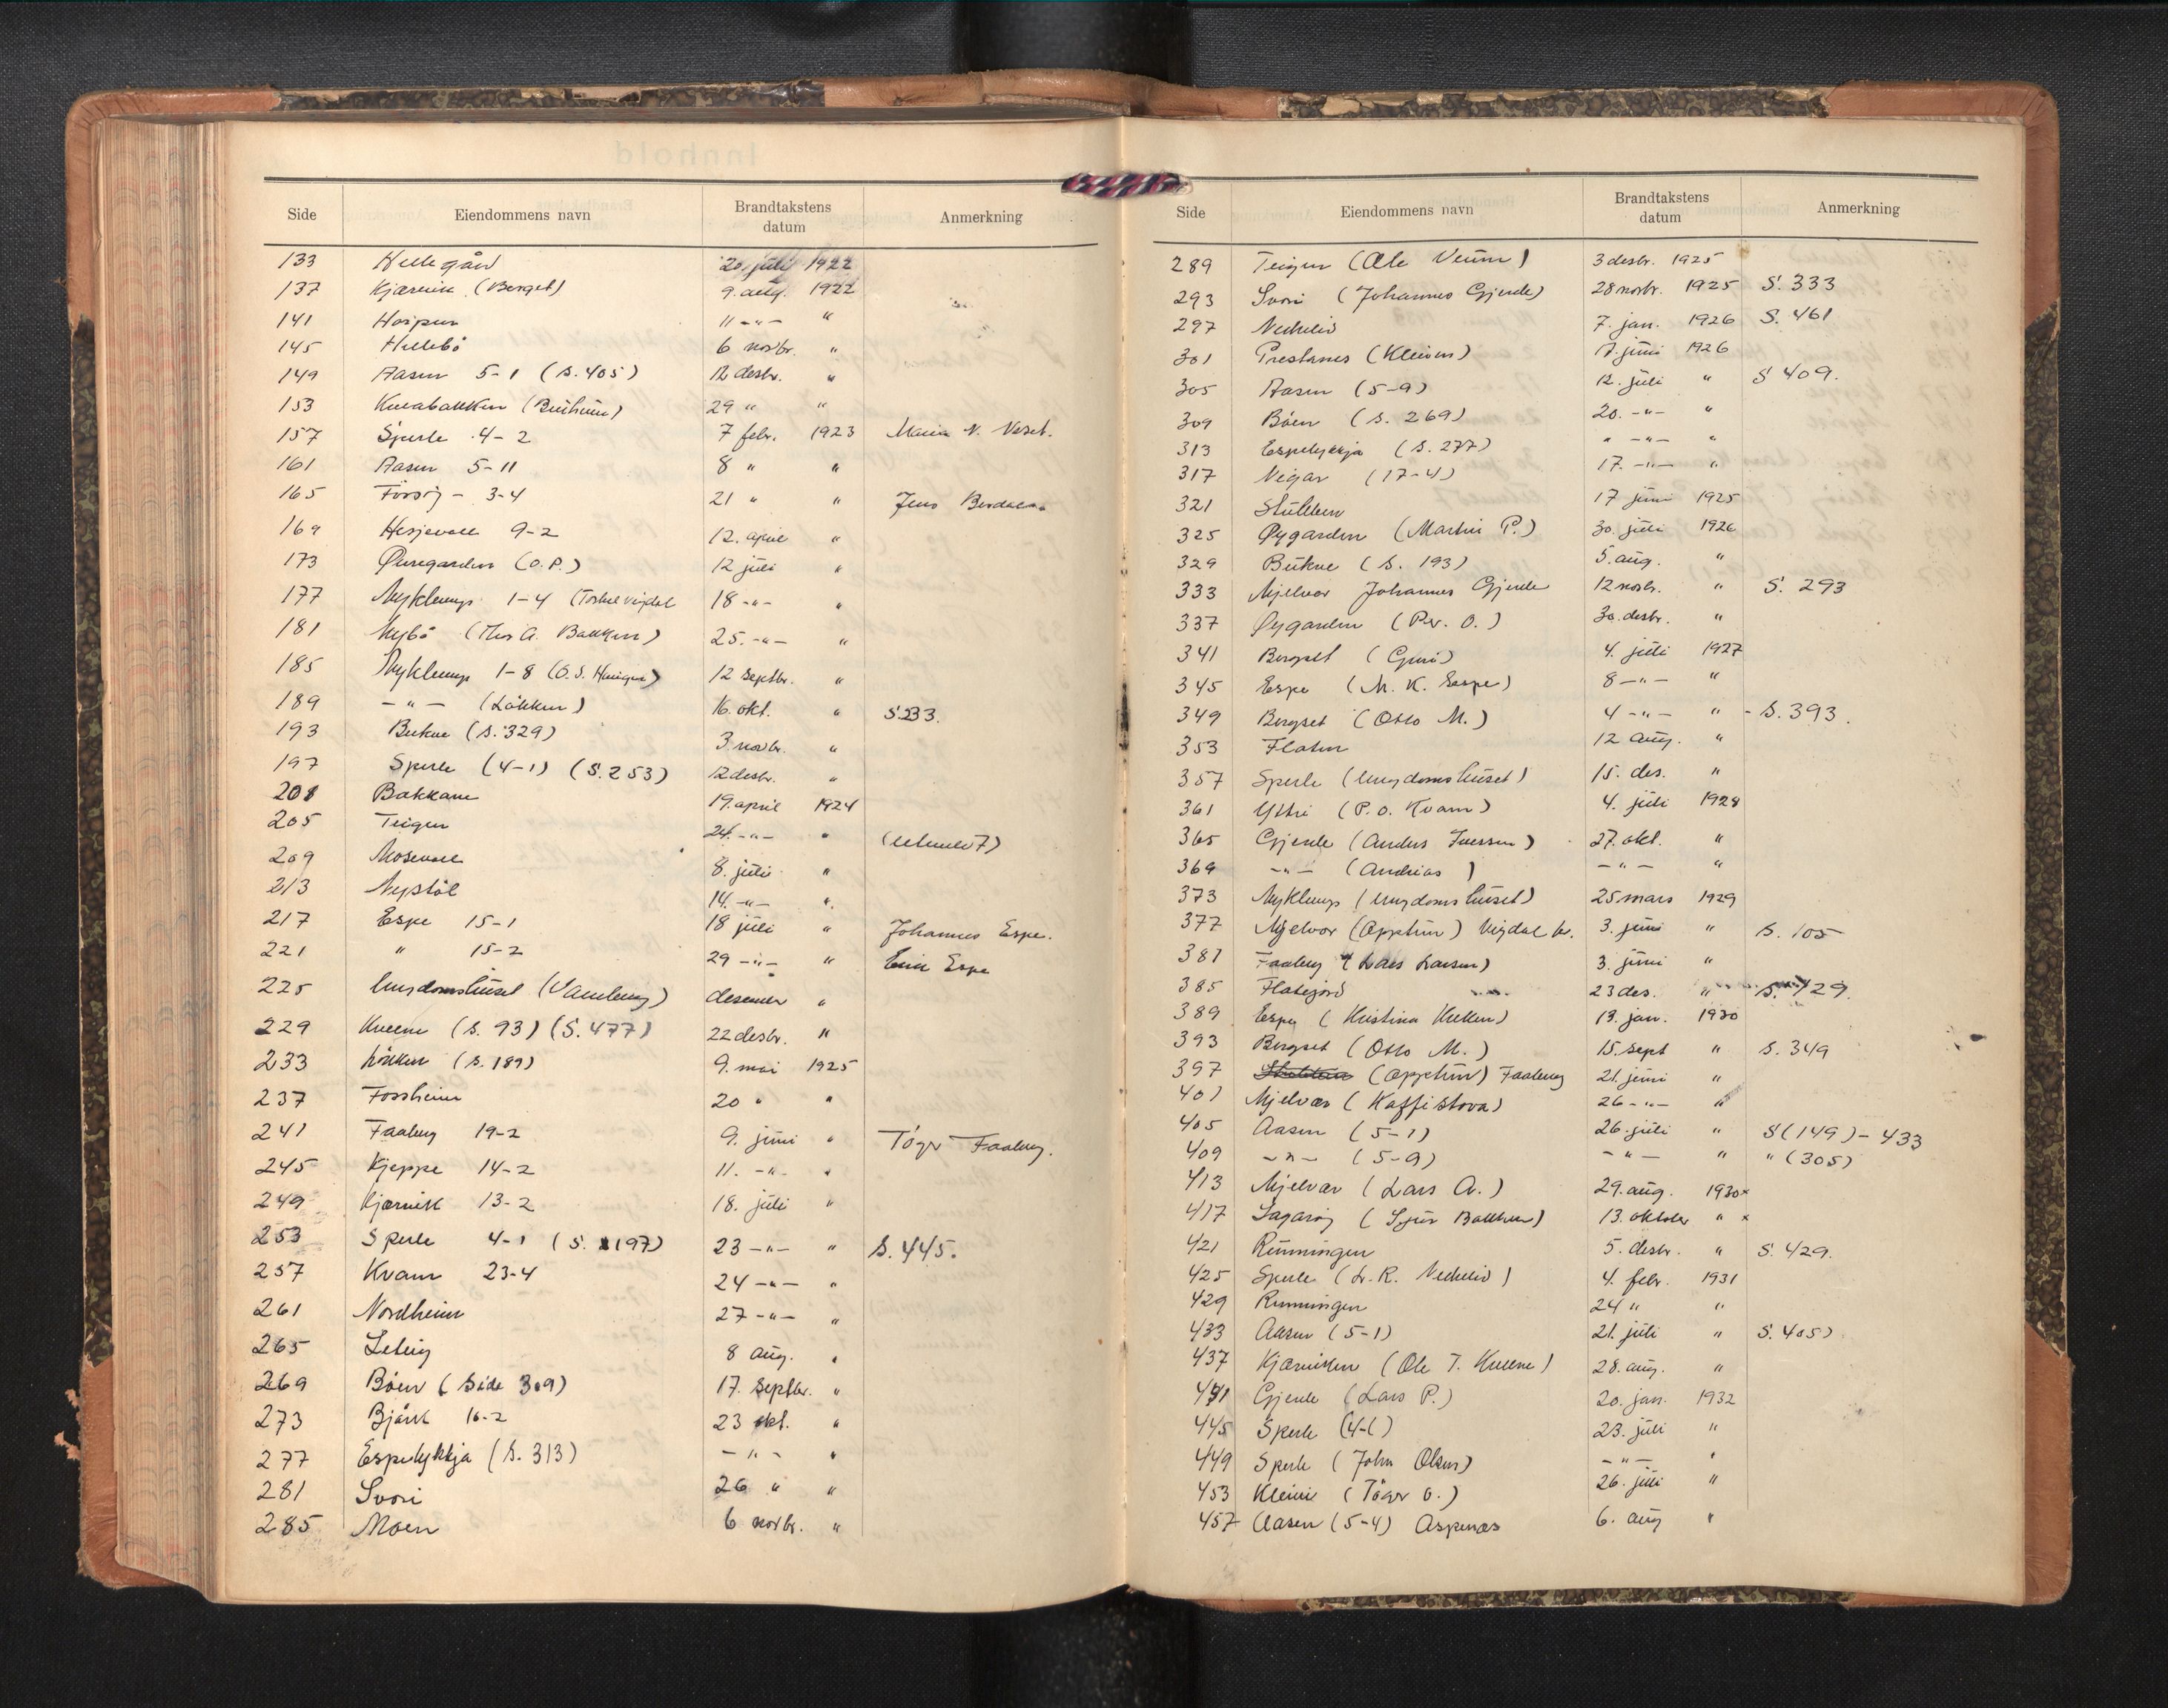 Innhold
Side Eiendommens navn Brandtakstens datum Anmerkning
133 Hellegård 20. juli 1922
137 Kjærvik (Berget) 9. aug. 1922
141 11 -"- "
145 Hellebö 6 novbr. "
149 Aasen 5-1 (S. 405) 12 desbr. "
153 29 " "
157 Sperle 4-2 7 febr. 1923
161 Aasen 5-11 8 " "
165 3-4 21 " " Jens
169 Hesjevoll 9-2 12. april "
173 Øvregarden (O.P.) 12 juli "
177 Myklemyr 1-4 18 -"- "
181 Nybö (Ths A. Bakken) 25. -"- "
185 Myklemyr 1-8 12 septbr. "
189 -"- (Lökken) 16. okt. " S. 233.
193 Bukve (S. 329) 3. novbr. "
197 Sperle (4-1) (S. 253) 12 desbr. "
201 Bakkane 19. april 1924
205 Teigen 24. -"- "
209 Mosevoll 8. juli "
213 Nystöl 14. -"- "
217 Espe 15-1 18 juli " Johannes Espe.
221 " 15-2 29 -"- " Erik Espe
225 Ungdomshuset desember "
229 Kveene (S. 93) (S. 477) 22 desbr. "
233 Lökken (S. 189) 9. mai 1925
237 Fossheim 20 " "
241 Faaberg 19-2 9. juni " Töger Faaberg.
245 Kjeppe 14-2 11. -"- "
249 Kjærvik 13-2 18. juli "
253 Sperle 4-1 (S. 197) 23 -"- " S. 445.
257 Kvam 23-4 24 -"- "
261 Nordheim 27 -"- "
265 8 aug. "
269 Böen (Side 309) 17. septbr. "
273 Bjørk 16-2 23 okt. "
277 Espelykkja (S. 313) -"- "
281 Svori 26 " "
285 Moen 6 novbr. "
Side Eiendommens navn Brandtakstens datum Anmerkning
289 Teigen (Ole Veum) 3 desbr. 1925
293 Svori (Johannes Gjerde) 28 novbr. 1925 S. 333
297 Neckelid 7. jan. 1926 S. 461
301 Prestanes (Kleiven) 17. juni 1926
305 Aasen (5-9) 12. juli " S 409.
309 Böen (S. 269) 20. -"- "
313 Espelykkja (S. 277) " -"- "
317 Vigar (17-4) 17. -"- "
321 17 juni 1925
325 Øygarden (Martin P.) 30. juli 1926
329 Bukve (S. 193) 5. aug. "
333 Mjelvor Johannes Gjerde 12 novbr. " S. 293
337 Øygarden (Per. O.) 30. desbr. "
341 Bergset (Guri) 4. juli 1927
345 Espe (M. K. Espe) 8 -"- "
349 Bergset (Otto M.) 4 -"- " - S. 393.
353 Flaten 12 aug. "
357 Sperle (Ungdomshuset) 15. des. "
361 Yttri (P. O. Kvam) 4. juli 1928
365 Gjerde (Anders Iversen) 27. okt. "
369 -"- (Andreas) -"- "
373 Myklemyr (Ungdomshuset) 25 mars 1929
377 Mjelvor (Opptun) Vigdal br. 3. juni " S. 105
381 Faaberg (Lars Larsen) 3. juni "
385 23 des. " S. 429.
389 Espe (Kristina Kvekken) 13. jan. 1930
393 Bergset (Otto M.) 15. sept " S. 349
397 (Opptun) Faaberg 21. juni "
401 Mjelvær (Kaffistova) 26 -"- "
405 Aasen (5-1) 26. juli " S (149) - 433
409 -"- (5-9) -"- " " (305)
413 Mjelvær (Lars A.) 29. aug. 1930 x
417 13. oktober " x
421 Rünningen 5. desbr. " S. 429.
425 Sperle (L. R. Neckelid) 4. febr. 1931
429 Runningen 24 " "
433 Aasen (5-1) 21. juli " S. 405)
437 Kjærviken (Ole T. Kveene) 28. aug. "
441 Gjerde (Lars P.) 20. jan. 1932
445 Sperle (4-1) 23. juli "
449 Sperle (John Olsen) -"- "
453 Kleiven (Töger O.) 26. juli "
457 Aasen (5-4) Aspenæs 6. aug "